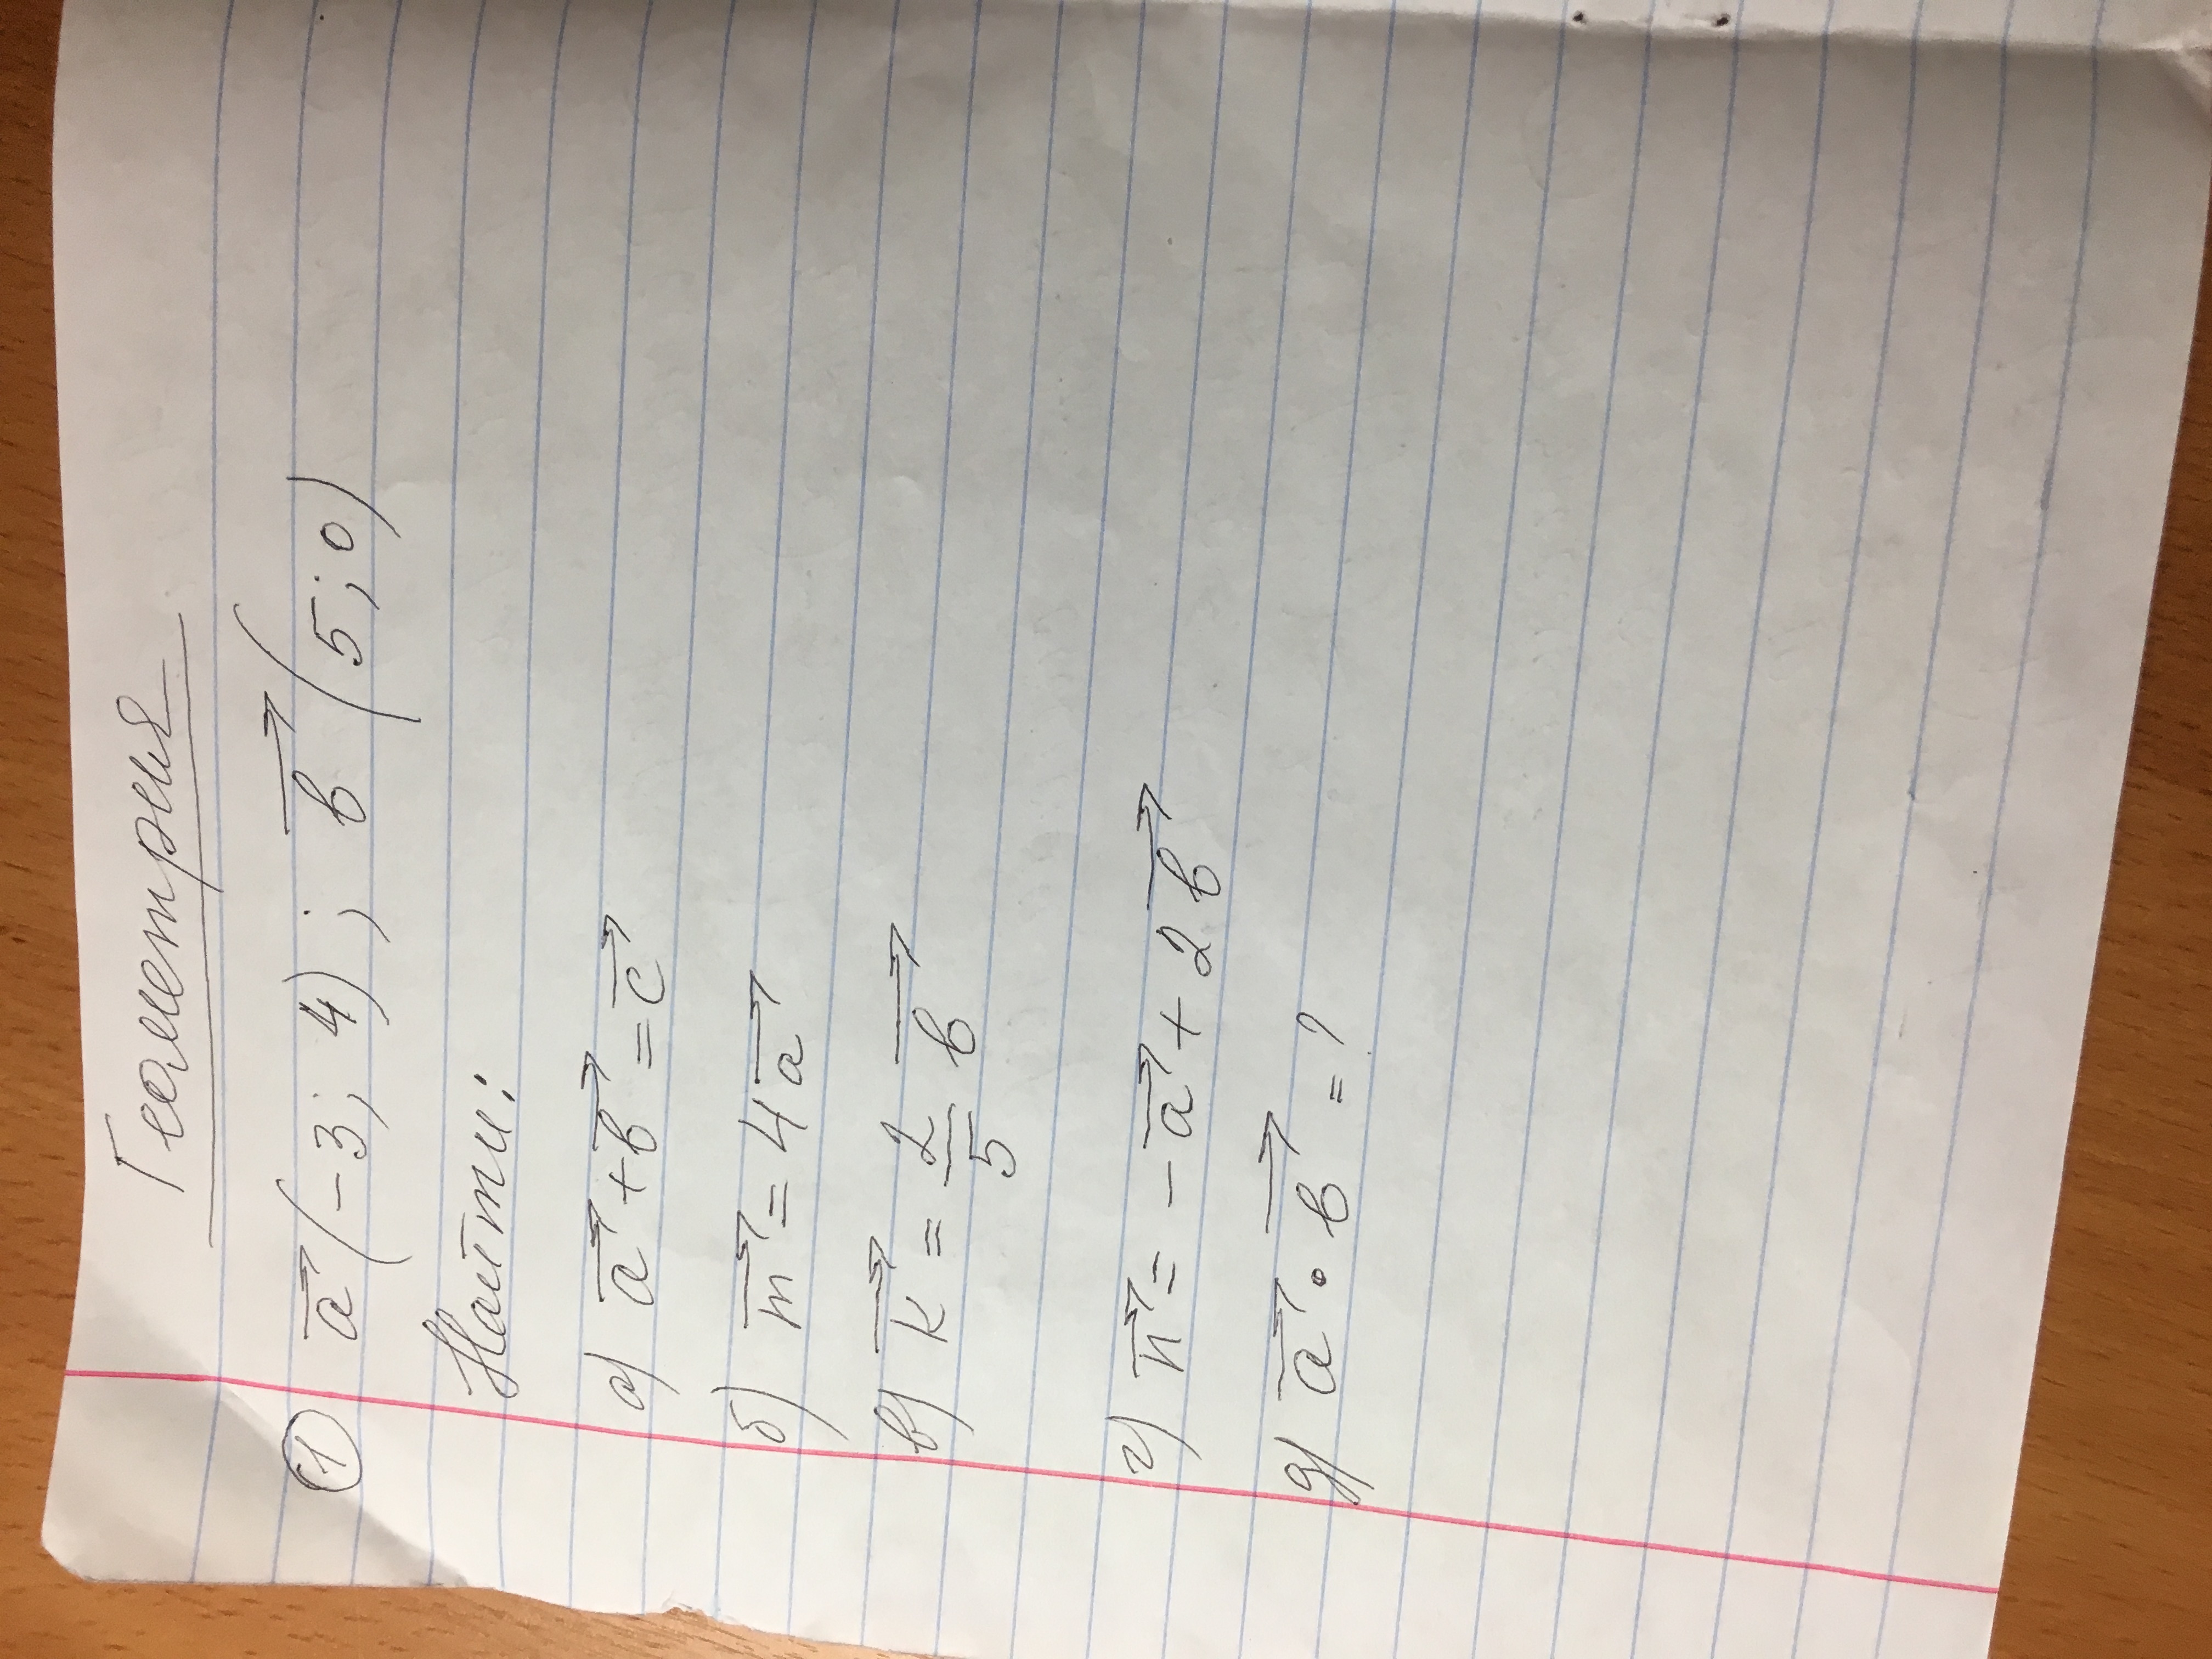 Геометрия
① a⃗ (-3; 4); в⃗ (5; 0)
Найти:
а) a⃗ + в⃗ = c⃗
б) m⃗ = 4 a⃗
в) k⃗ = 2/5 в⃗
г) n⃗ = - a⃗ + 2 в⃗
д) a⃗ • в⃗ = ?